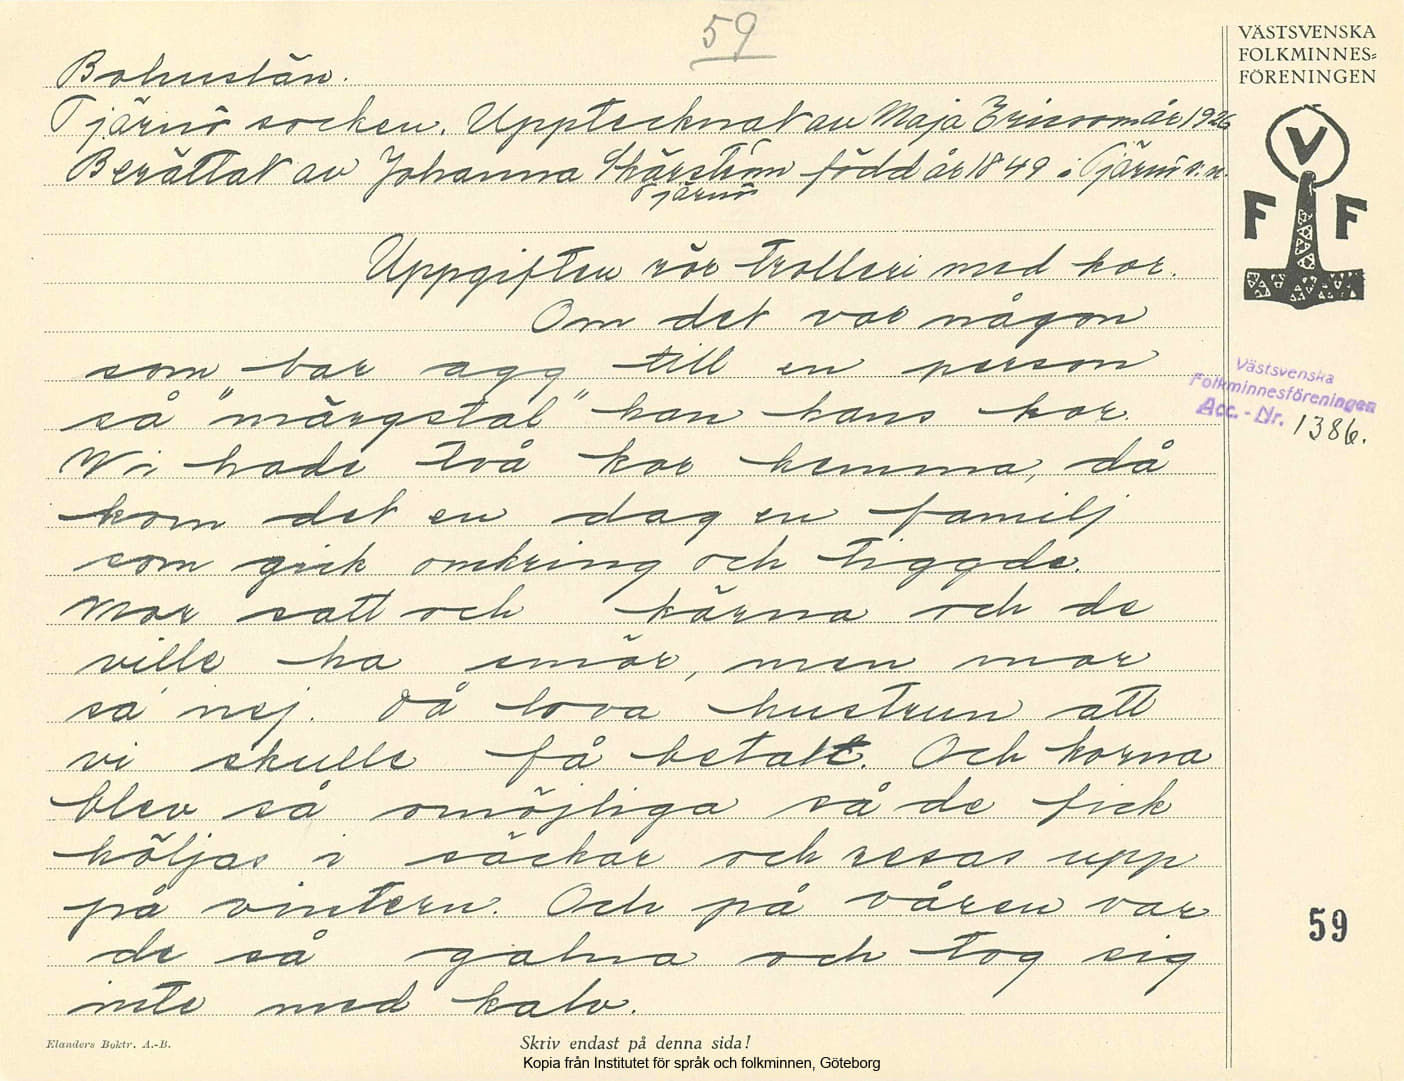 59
VÄSTSVENSKA
FOLKMINNES=
FÖRENINGEN
Bohuslän.
Tjärnö socken. Upptecknat av Maja Ericson år 1926
Berättat av Johanna Skärström född år 1849 i Tjärnö s.n.
Tjärnö
V
F F
Uppgiften rör trolleri med kor.
Om det var någon
som bar agg till en person
så "märgstal" han hans kor.
Wi hade två kor hemma, då
kom det en dag en familj
som gick omkring och tiggde.
Mor satt och kärna och de
ville ha smör, men mor
sa nej. Då lova hustrun att
vi skulle få betalt. Och korna
blev så omöjliga så de fick
höljas i säckar och resas upp
på vintern. Och på våren var
de så galna och tog sig
inte med kalv.
Västsvenska
Folkminnesföreningen
Acc. - Nr. 1386.
59
Elanders Boktr. A.-B.
Skriv endast på denna sida!
Kopia från Institutet för språk och folkminnen, Göteborg